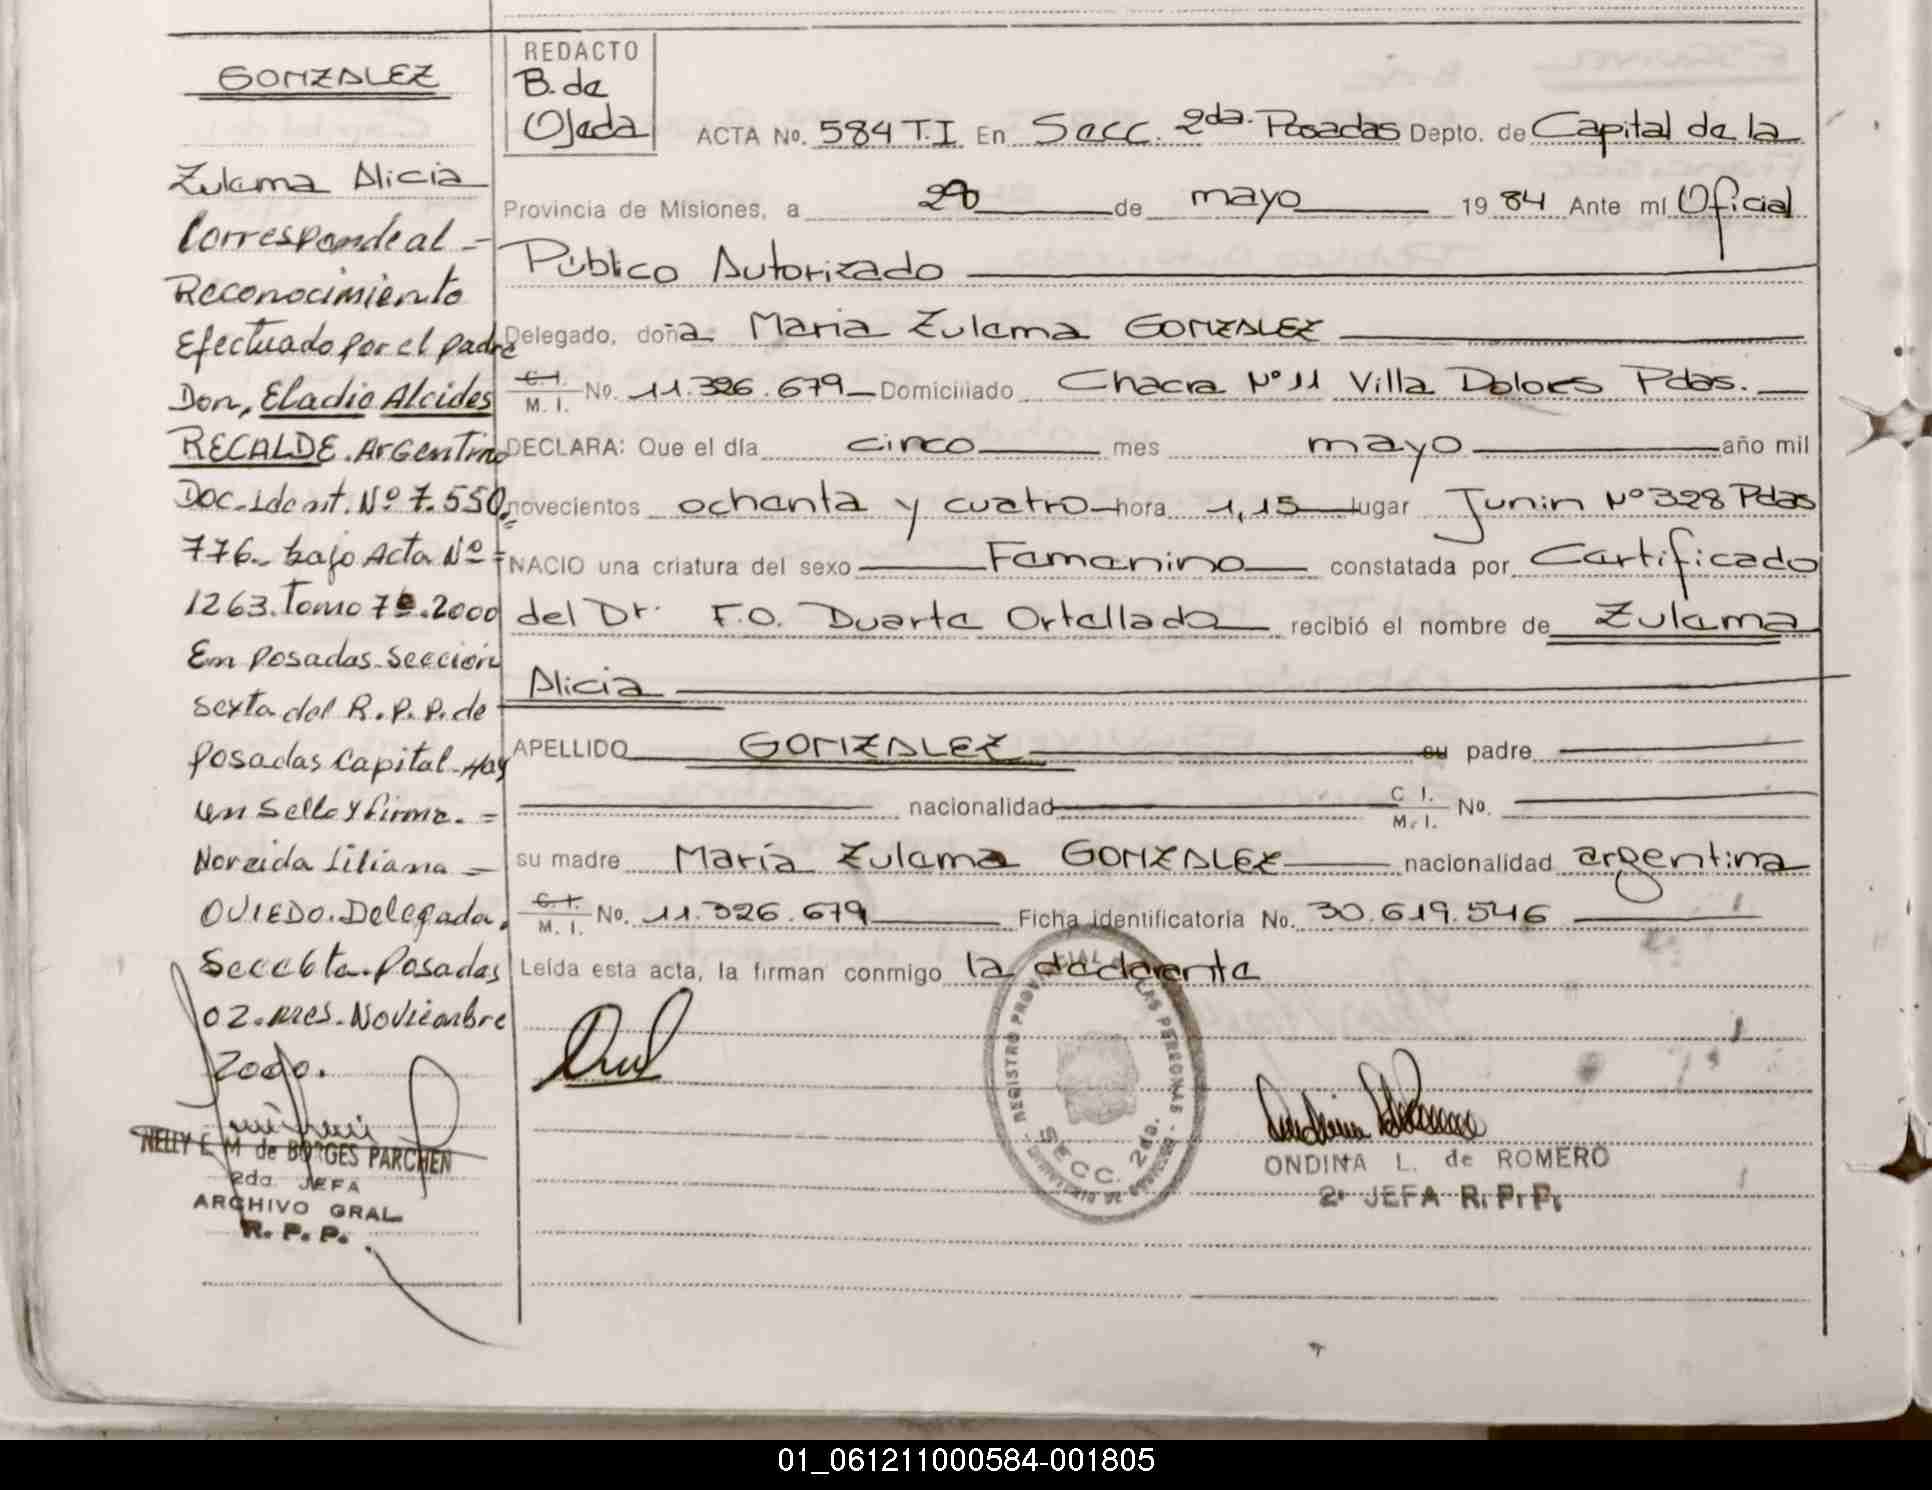 GONZALEZ
Zulema Alicia
Corresponde al =
Reconocimiento
Efectuado por el padre
Don, Eladio Alcides
RECALDE. Argentino
Doc. Ident. Nº 7.550.=
776.- bajo Acta Nº =
1263. Tomo 7º. 2000
En Posadas. Sección
Sexta del R.P.P. de
Posadas Capital.-Hay
un Sello y firma. =
Noreida Liliana =
OVIEDO. Delegada.
Secc 6ta. Posadas
02. mes. Noviembre
2000.
NELLY E. M de BORGES PARCHEN
2da. JEFA
ARCHIVO GRAL
R. P. P.
REDACTO
B. de
Ojeda
ACTA No. 584 T.I En Secc. 2da. Posadas Depto. de Capital de la
Provincia de Misiones, a de mayo 1984 Ante mí Oficial
Público Autorizado
Delegado, doña Maria Zulema GONZALEZ
C.I. M.I. No. 11.326.679 Domiciliado Chacra Nº 11 Villa Dolores Pdas.
DECLARA: Que el día cinco mes mayo año mil
novecientos ochenta y cuatro hora 1,15 lugar Junin Nº 328 Pdas
NACIO una criatura del sexo Femenino constatada por Certificado
del Dr. F.O. Duarte Ortellado recibió el nombre de Zulema
Alicia
APELLIDO GONZALEZ su padre
nacionalidad C I. M. I. No.
su madre María Zulema GONZALEZ nacionalidad argentina
C.I. M. I. No. 11.326.679 Ficha identificatoria No. 30.619.546
Leída esta acta, la firman conmigo la declarante
REGISTRO PROVINCIAL DE LAS PERSONAS
SECC. 2da.
ONDINA L. de ROMERO
2ª JEFA R. P. P.
01_061211000584-001805